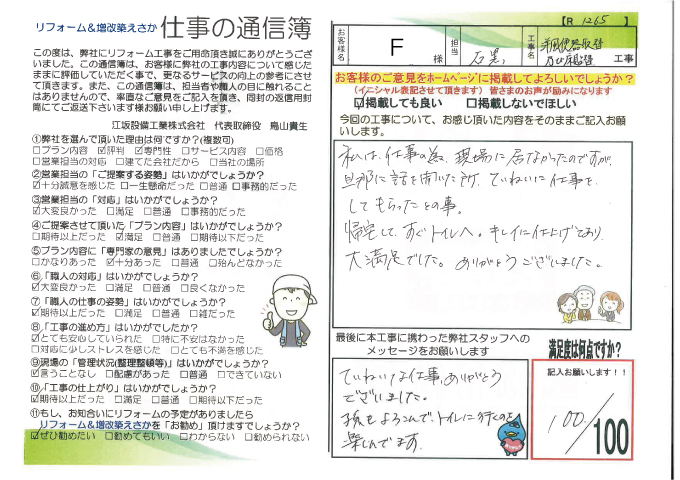 リフォーム＆増改築えさか 仕事の通信簿
この度は、弊社にリフォーム工事をご用命頂き誠にありがとうござ
いました。この通信簿は、お客様に弊社の工事内容について感じた
ままに評価していただく事で、更なるサービスの向上の参考にさせ
て頂きます。また、この通信簿は、担当者や職人の目に触れること
はありませんので、率直なご意見をご記入を頂き、同封の返信用封
筒にてご返送下さいます様お願い申し上げます。
江坂設備工業株式会社　代表取締役　鳥山貴生
①弊社を選んで頂いた理由は何ですか？(複数可)
□プラン内容 ☑評判 ☑専門性 □サービス内容 □価格
□営業担当の対応 □建てた会社だから □当社の場所
②営業担当の「ご提案する姿勢」はいかがでしょうか？
☑十分誠意を感じた □一生懸命だった □普通 □事務的だった
③営業担当の「対応」はいかがでしょうか？
☑大変良かった □満足 □普通 □事務的だった
④ご提案させて頂いた「プラン内容」はいかがでしょうか？
□期待以上だった ☑満足 □普通 □期待以下だった
⑤プラン内容に「専門家の意見」はありましたでしょうか？
□かなりあった ☑十分あった □普通 □殆んどなかった
⑥.「職人の対応」はいかがでしょうか？
☑大変良かった □満足 □普通 □良くなかった
⑦「職人の仕事の姿勢」はいかがでしょうか？
☑期待以上だった □満足 □普通 □雑だった
⑧「工事の進め方」はいかがでしたか？
☑とても安心していられた □特に不安はなかった
□対応に少しストレスを感じた □とても不満を感じた
⑨現場の「管理状況(整理整頓等)」はいかがでしょうか？
☑言うことなし □配慮があった □普通 □できていない
⑩.「工事の仕上がり」はいかがでしょうか？
☑期待以上だった □満足 □普通 □期待以下だった
⑪もし、お知合いにリフォームの予定がありましたら
リフォーム＆増改築えさかを「お勧め」頂けますでしょうか？
☑ぜひ勧めたい □勧めてもいい □わからない □勧められない
【R 1265 】
お客様名 F 様 担当 石黒 工事名 工事
お客様のご意見をホームページに掲載してよろしいでしょうか？
(イニシャル表記させて頂きます) 皆さまのお声が励みになります
☑掲載しても良い □掲載しないでほしい
今回の工事について、お感じ頂いた内容をそのままご記入お願
いします。
私は、仕事の為、現場に居なかったのですが、
旦那に話を聞いた所、ていねいに仕事を
してもらったとの事。
帰宅して、すぐトイレへ。キレイに仕上げており、
大満足でした。ありがとうございました。
最後に本工事に携わった弊社スタッフへの
メッセージをお願いします
ていねいな仕事、ありがとう
ございました。
孫もよろこんで、トイレに行くのを
楽しんでます。
満足度は何点ですか？
記入お願いします！！
100/100